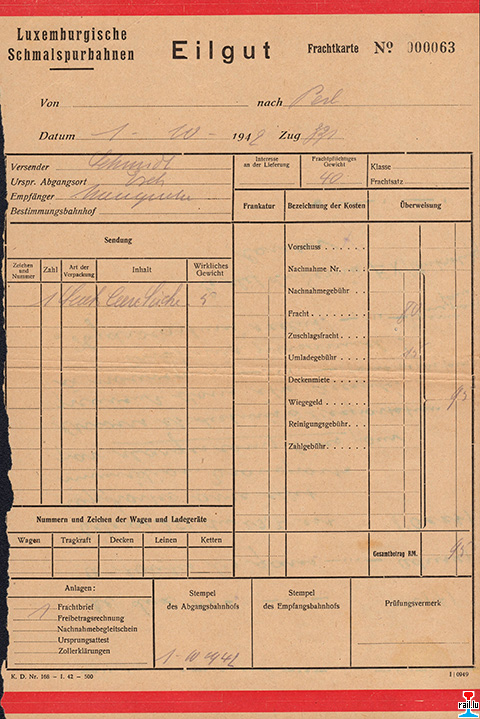 Luxemburgische Schmalspurbahnen
Eilgut
Frachtkarte Nº 000063
Von nach Perl
Datum 1-10-1942 Zug
Versender Schmidt
Urspr. Abgangsort Esch
Empfänger
Bestimmungsbahnhof
Interesse an der Lieferung
Frachtpflichtiges Gewicht 40
Klasse
Frachtsatz
Frankatur
Bezeichnung der Kosten
Überweisung
Sendung
Zeichen und Nummer
Zahl
Art der Verpackung
Inhalt
Wirkliches Gewicht
1 leere Säcke 5
Vorschuss
Nachnahme Nr.
Nachnahmegebühr
Fracht 80
Zuschlagsfracht
Umladegebühr 15
Deckenmiete
Wiegegeld 95
Reinigungsgebühr
Zählgebühr
Nummern und Zeichen der Wagen und Ladegeräte
Wagen Tragkraft Decken Leinen Ketten
Gesamtbetrag RM. 95
Anlagen:
1 Frachtbrief
Freibetragsrechnung
Nachnahmebegleitschein
Ursprungsattest
Zollerklärungen
Stempel des Abgangsbahnhofs
1-10 1942
Stempel des Empfangsbahnhofs
Prüfungsvermerk
K. D. Nr. 168 – 1. 42 – 500
I|0949
rail.lu